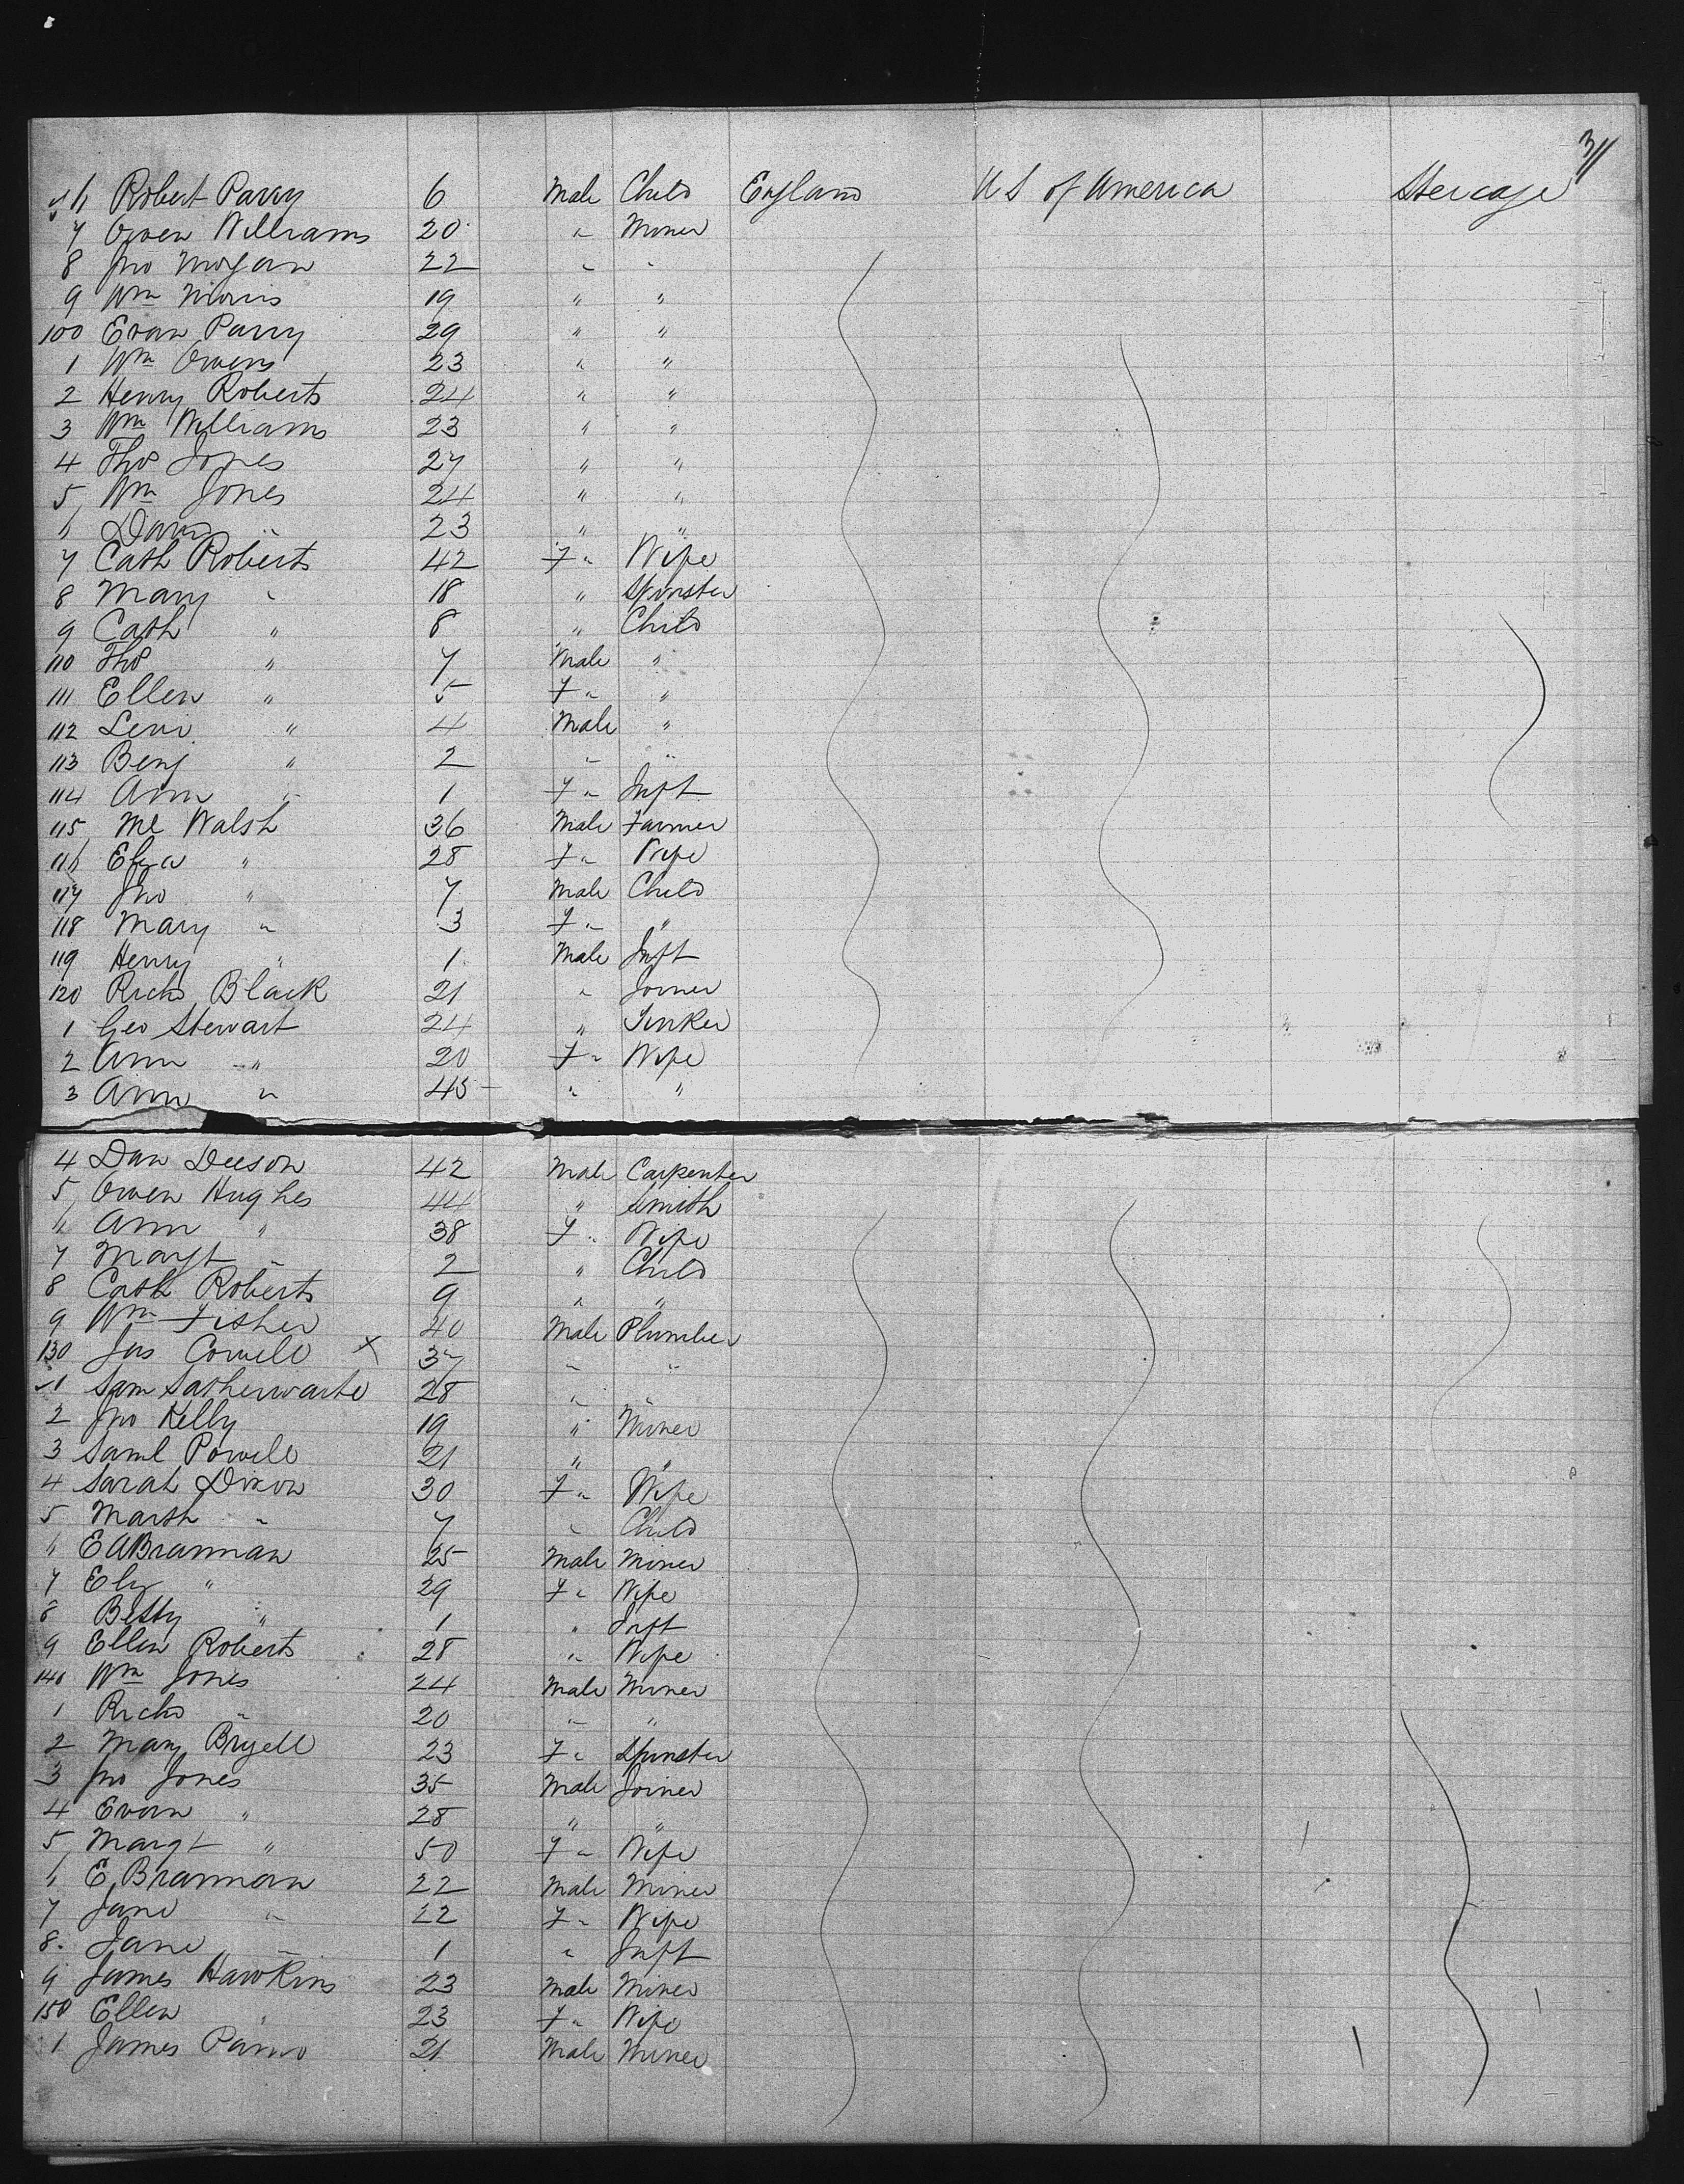 31
6 Robert Parry 6 Male Child England U S of America Steerage
7 Owen Williams 20 " Miner
8 Jno Mogan 22 " "
9 Wm Morris 19 " "
100 Evan Parry 29 " "
1 Wm Owens 23 " "
2 Henry Roberts 24 " "
3 Wm Williams 23 " "
4 Thos Jones 27 " "
5 Wm Jones 24 " "
6 David " 23 " "
7 Cath Roberts 42 F " Wife
8 Mary " 18 " Spinster
9 Cath " 8 " Child
110 Thos " 7 Male "
111 Ellen " 5 F " "
112 Levi " 4 Male "
113 Benj " 2 " "
114 Ann " 1 F " Inft
115 Ml Walsh 36 Male Farmer
116 Eliza " 28 F " Wife
117 Jno " 7 Male Child
118 Mary " 3 F " "
119 Henry " 1 Male Inft
120 Richd Black 21 " Joiner
1 Geo Stewart 24 " Tinker
2 Ann " 20 F " Wife
3 Ann " 45 " "
4 Dan Deeson 42 Male Carpenter
5 Owen Hughes 44 " Smith
6 Ann " 38 F " Wife
7 Margt " 2 " Child
8 Cath Roberts 9 " "
9 Wm Fisher 40 Male Plumber
130 Jas Cornell X 37 " "
1 Sam Satherwaite 28 " "
2 Jno Kelly 19 " Miner
3 Saml Powell 21 " "
4 Sarah Dixon 30 F " Wife
5 Marth " 7 " Child
6 E A Brannan 25 Male Miner
7 Eliz " 29 F " Wife
8 Betty " 1 " Inft
9 Ellen Roberts 28 " Wife
140 Wm Jones 24 Male Miner
1 Richd " 20 " "
2 Mary Bryell 23 F " Spinster
3 Jno Jones 35 Male Joiner
4 Evan " 28 " "
5 Margt " 50 F " Wife
6 E Brannan 22 Male Miner
7 Jane " 22 F " Wife
8 Jane " 1 " Inft
9 James Hawkins 23 Male Miner
150 Ellen " 23 F " Wife
1 James 21 Male Miner